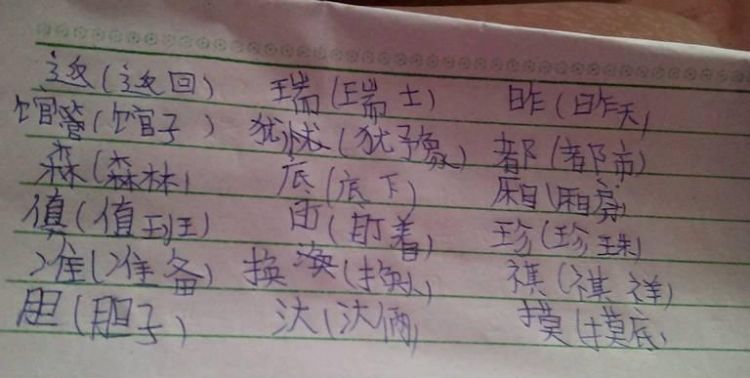 返(返回) 瑞(瑞士) 昨(昨天)
馆(馆子) 犹(犹予象) 都(都市)
森(森林) 底(底下) 厢(厢房)
值(值班) (盯着) 珍(珍珠)
准(准备) 换(换人) 祺(祺祥)
胆(胆子) 汰(汰俩) 摸(摸底)